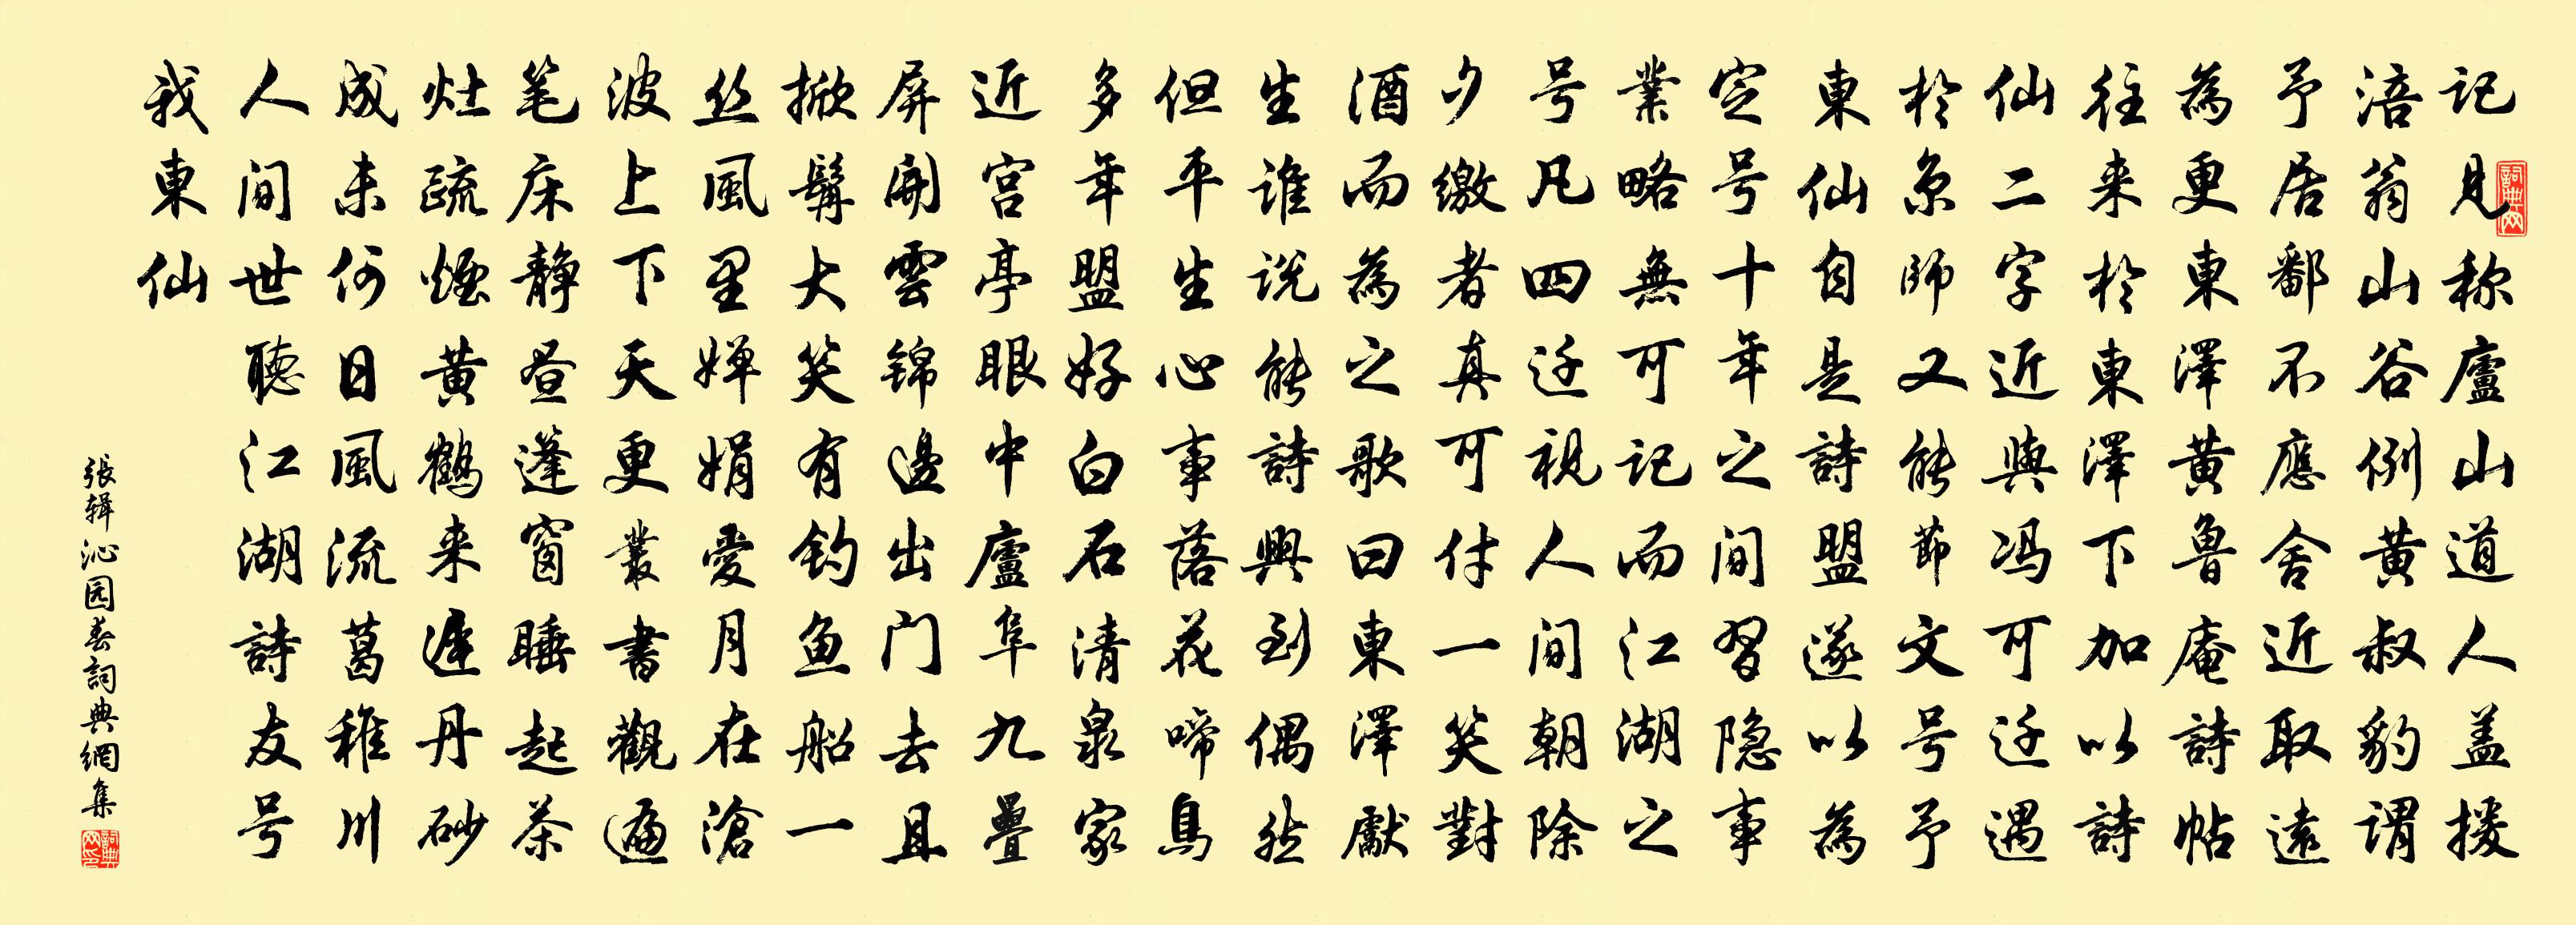 记見称廬山道人盖援
涪翁山谷例黄叔豹謂
予居鄱不應舍近取遠
為更東澤黄魯庵詩帖
往来於東澤下加以詩
仙二字近與冯可迁遇
於京師又能節文号予
東仙自是詩盟遂以為
定号十年之间習隐事
業略無可記而江湖之
号凡四迁視人间朝除
夕缴者真可付一笑對
酒而為之歌曰東澤獻
生誰说能詩興到偶然
但平生心事落花啼鳥
多年盟好白石清泉家
近宫亭眼中廬阜九疊
屏開雲錦邊出门去且
掀髯大笑有钓鱼船一
丝風里婵娟愛月在滄
波上下天更叢書觀遍
笔床静昼篷窗睡起茶
灶疏煙黄鹤来遲丹砂
成未何日風流葛稚川
人间世聽江湖詩友号
我東仙
張辑沁园春詞典網集
詞典网
詞典网